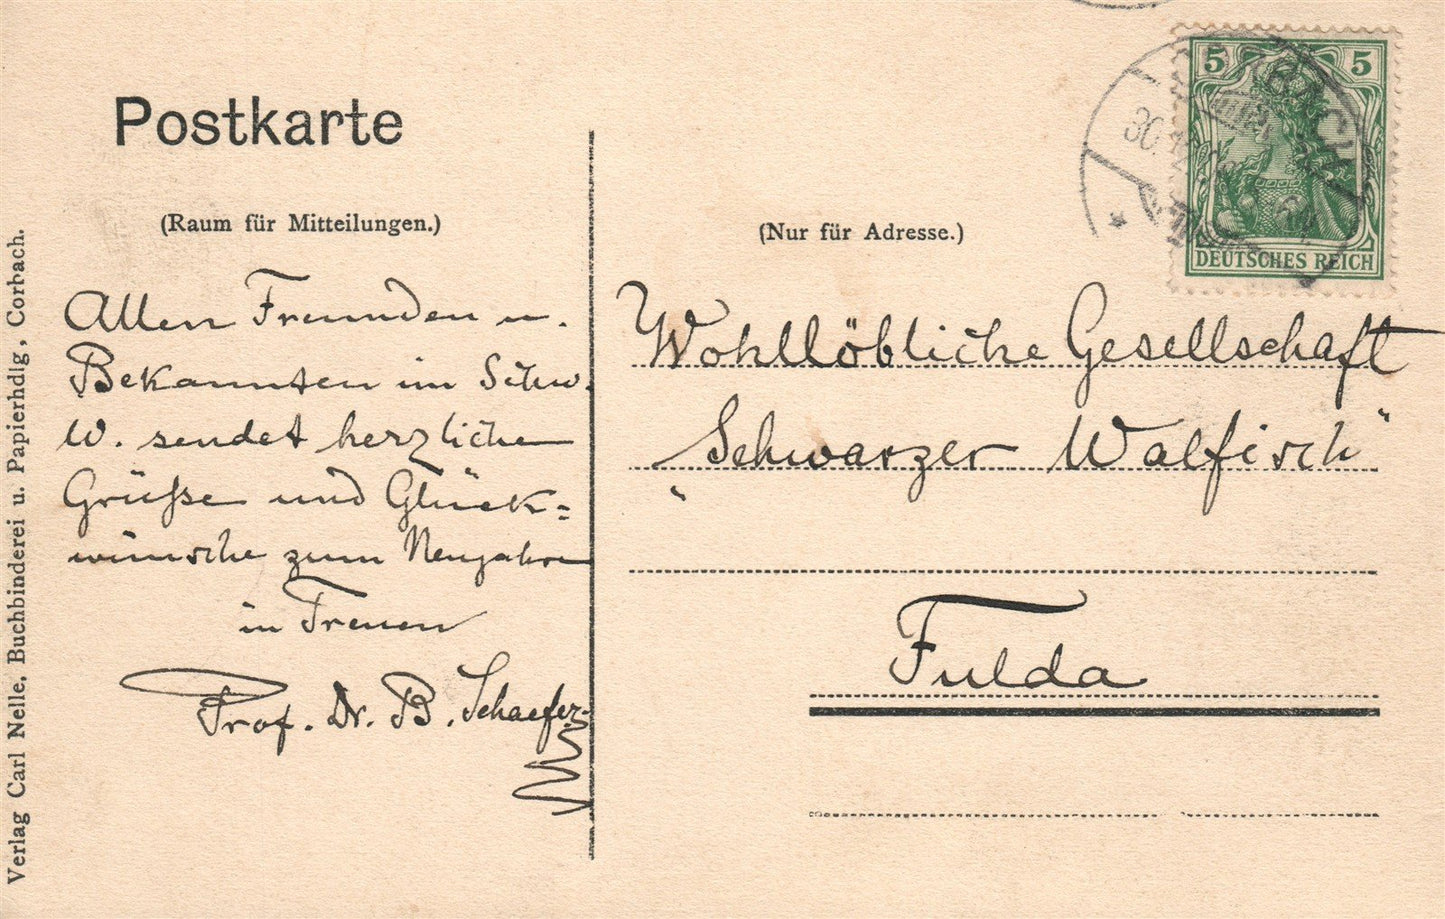 Postkarte
(Raum für Mitteilungen.)
Allen Freunden u.
Bekannten im Schw.
W. sendet herzliche
Grüße und Glück=
wünsche zum Neujahre
in Treuen
Prof. Dr. B. Schaefer
(Nur für Adresse.)
5 5
DEUTSCHES REICH
30.12
Wohllöbliche Gesellschaft
„Schwarzer Walfisch"
Fulda
Verlag Carl Nelle, Buchbinderei u. Papierhdlg, Corbach.